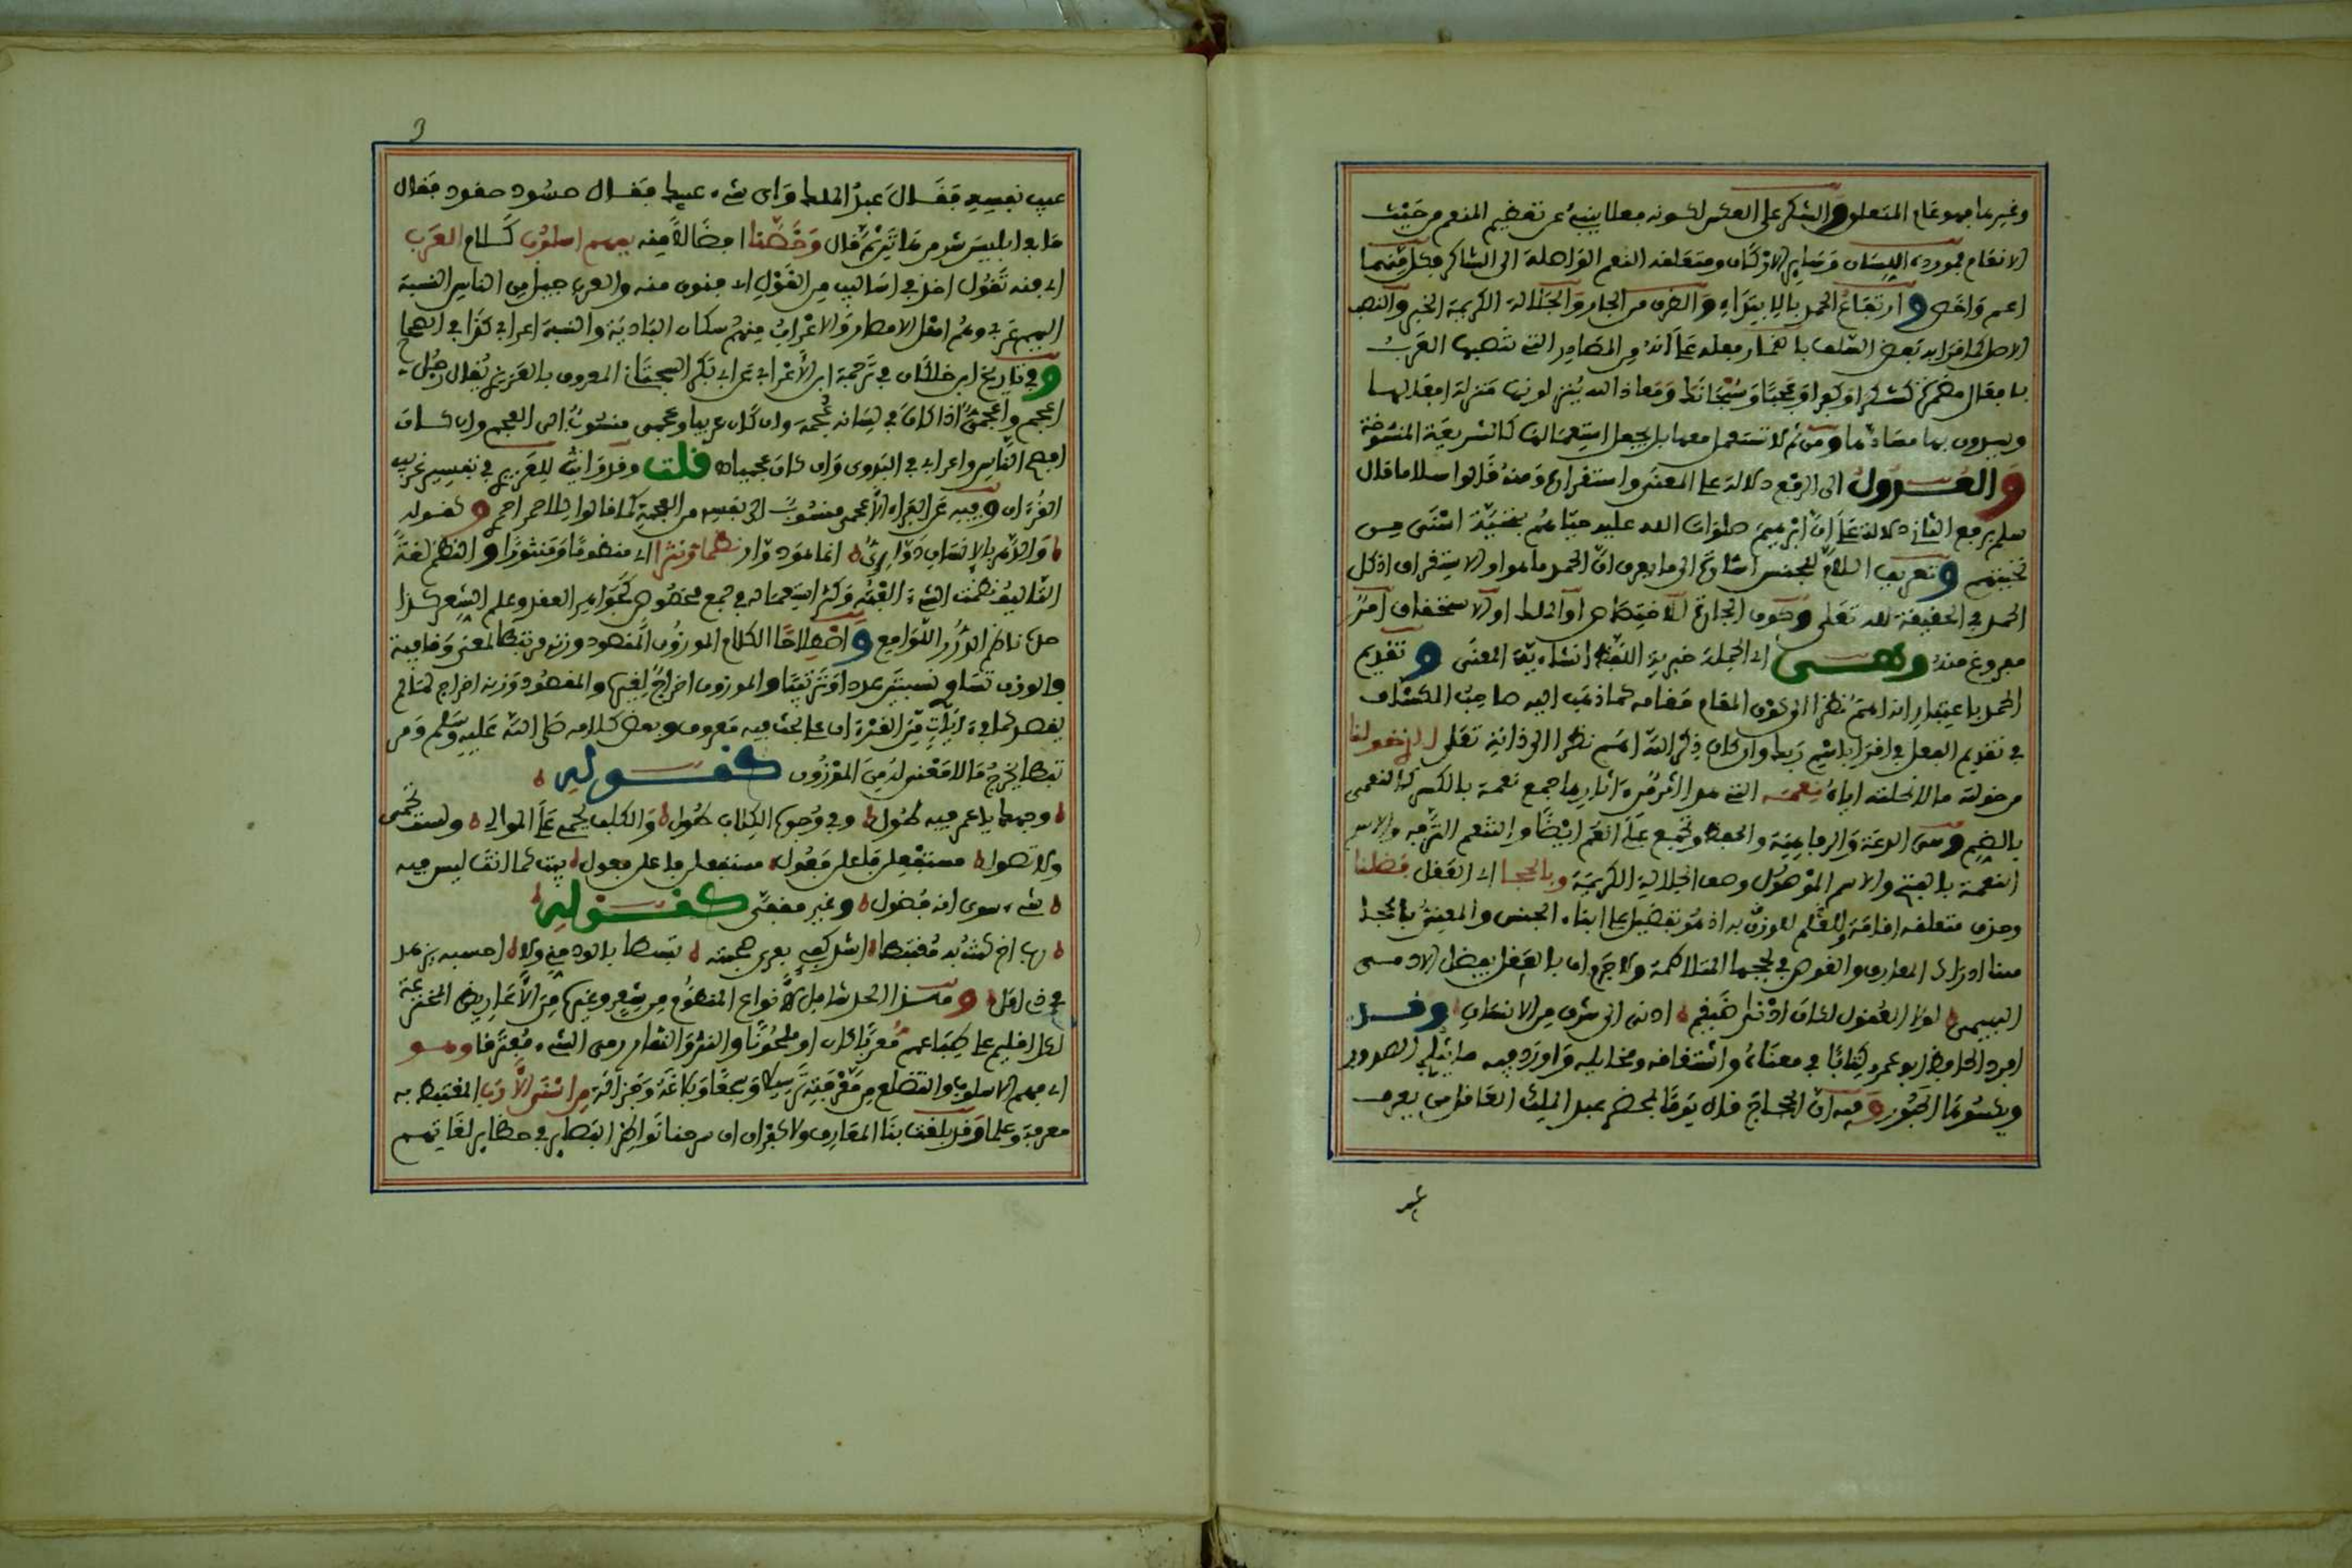 وغيرها فهو عام المتعلق والشكر على العكس لكونه فعلا ينبئ عن تعظيم المنعم من حيث
الانعام فمورده اللسان وسائر الاركان ومتعلقه النعم الواصلة الى الشاكر فكل منهما
اعم واخص وارتفاع الحمد بالابتداء والظرف من الجار والجلالة الكريمة الخبر والنصب
الاصل كما قرا به بعض السلف باضمار فعله على انه من المصادر التي تنصبها العرب
بافعال مضمرة كشكرا وكفرا وعجبا وسبحانك ومعاذ الله ينزلونها منزلة افعالها
ويسدون بها مسادها ومن ثم لا تستعمل معها بل يجعل استعمالها كالشريعة المنسوخة
والعدول الى الرفع دلالة على المعنى واستقراره ومنه قالوا سلاما قال
سلم برفع الثاني دلالة على ان ابرهيم صلوات الله عليه حياهم بتحية احسن من
تحيتهم وتعريف السلام للجنس اشارة الى ما يعرف ان الحمد ما هو او الاستغراق اذ كل
الحمد في الحقيقة لله تعلى وكون الجارة للاختصاص او الملك او الاستحقاق امر
مفروغ منه وهـي اي الجملة خبرية اللفظ انشائية المعنى وتقديم
الحمد باعتبار انه اهم نظرا الى كون المقام مقامه كما ذهب اليه صاحب الكشاف
في تقديم الفعل في اقرا باسم ربك وان كان ذكر الله اهم نظرا الى ذاته تعلى الذي خولنا
من خوله مالا نحلته اياه نعمـه التي هو اثر من اثارها جمع نعمة بالكسر كالنعمى
بالضم وهي الدعة والرفاهية والحفظ وتجمع على انعم ايضا والتنعم الترفه والاسم
النعمة بالفتح والاسم الموصول وصف الجلالة الكريمة وبالحجـا اي العقل فضلنا
وحذف متعلقه اقامة للنظم للوزن به اذ هو تفضيل على ابناء الجنس والمعنى بالحجا
هنا ادراك المعارف والغوص في لججها المتلاطمة ولا جرم ان بالعقل يفضل الادمـي
البهيمي لولا العقول لكان ادنى ضيغم ادنى الى شرف من الانسان وقـد
افرد الحافظ ابو عمرو كتابا في معناه واشتقاقه ومخايله واورد فيه ما يثلج الصدور
ويكسوها الحبور وفيه ان الحجاج قال يوما بمحضر عبد الملك العاقل من يعرف
عيـ
3
عيب نفسه فقـال عبد الملك واي شيء عيبك فقـال حسود حقود فقال
ما بعد ابليس شر من هاتين ثم قال وخصنا افضالا منه بفهم اسلوب كـلام العرب
اي فنه تقول اخذ في اساليب من القول اي فنون منه والعرب جيل من الناس النسبة
اليهم عربي وهم اهل الامصار والاعراب منهم سكان البادية والنسبة اعرابي كذا في الصحاح
وفي تاريخ ابن خلكان في ترجمة ابن الاعرابي عن ابي بكر السجستاني المعروف بالعزيزي يقال رجل
اعجم واعجمي اذا كان في لسانه عجمة وان كان عربيا وعجمي منسوب الى العجم وان كـان
افصح الناس واعرابي في البدوي وان كان عجميا اه قلت وقد رايته للعزيزي في تفسير غريب
القرءان وفيه عن الفراء الاعجمي منسوب الى نفسه من العجمة كما قالوا للاحمر احمري وكقولـه
والدهر بالانسان دواري انما هو دوار نظما ونثرا اي منظوما ومنثورا والنظم لغة
التاليف نظمت الشيء الفته وكثر استعماله في جمع مخصوص كجواهر العقد وعلم الشعر كـذا
حل ناظم الدرر اللوامع واصطلاحا الكلام الموزون المقصود وزنه مرتبطا لمعنى وقافية
والوزن تساوي نسبتين عددا وترتيبا والموزون اخراج لغيره والمقصود وزنه اخراج لما لم
يقصد كما في ءايات من القرءان على بحث فيه معروف وبعض كلامه صلى الله عليه وسلم ومر
تبطا يخرج ما لا معنى له من الموزون كقـولـه
وجهك يا عمرو فيه طول وفي وجوه الكلاب طول والكلب يحمي على الموالي ولست تحمي
ولا تصول مستفعلن فاعلن فعول مستفعلن فاعلن فعول بيت كما انت ليس فيه
شيء سوى انه فضول وغير مقفى كقـولـه
رب اخ كنت به مغتبطا اشد كفي بعرى صحبته تمسكا بالود مني ولا احسبه يزهد
في ذي امل وهـذا الحد شامل لانواع المنظوم من شعر وغيره من الاعاريض المخترعة
لكل اقليم على طباعهم معربا كان او ملحونا والنثر والنثار رمي الشيء متفرقا وهـو